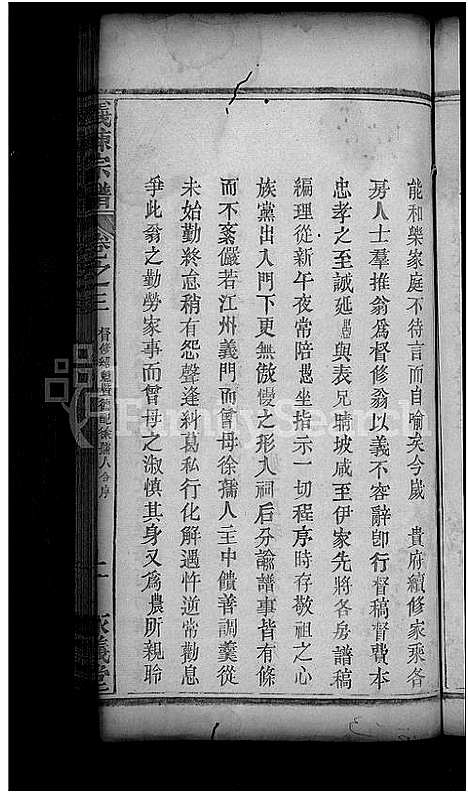 能和樂家庭不待言而自喻矣今歲　貴府續修家乘各
房人士羣推翁爲督修翁以義不容辭卽行督稿督費本
忠孝之至誠延愚與表兄晴坡咸至伊家先將各房譜稿
編理從新午夜常陪愚坐指示一切程序時存敬祖之心
族黨出入門下更無傲慢之形入祠后分諭譜事皆有條
而不紊儼若江州義門而曾母徐孺人主中饋善調羹從
未始勤終怠稍有怨聲逢糾葛私行化解遇忤逆常勸息
爭此翁之勤勞家事而曾母之淑慎其身又爲農所親聆
義陳宗譜
卷之三
督修 德配徐孺人合序
二
義堂
FamilySearch